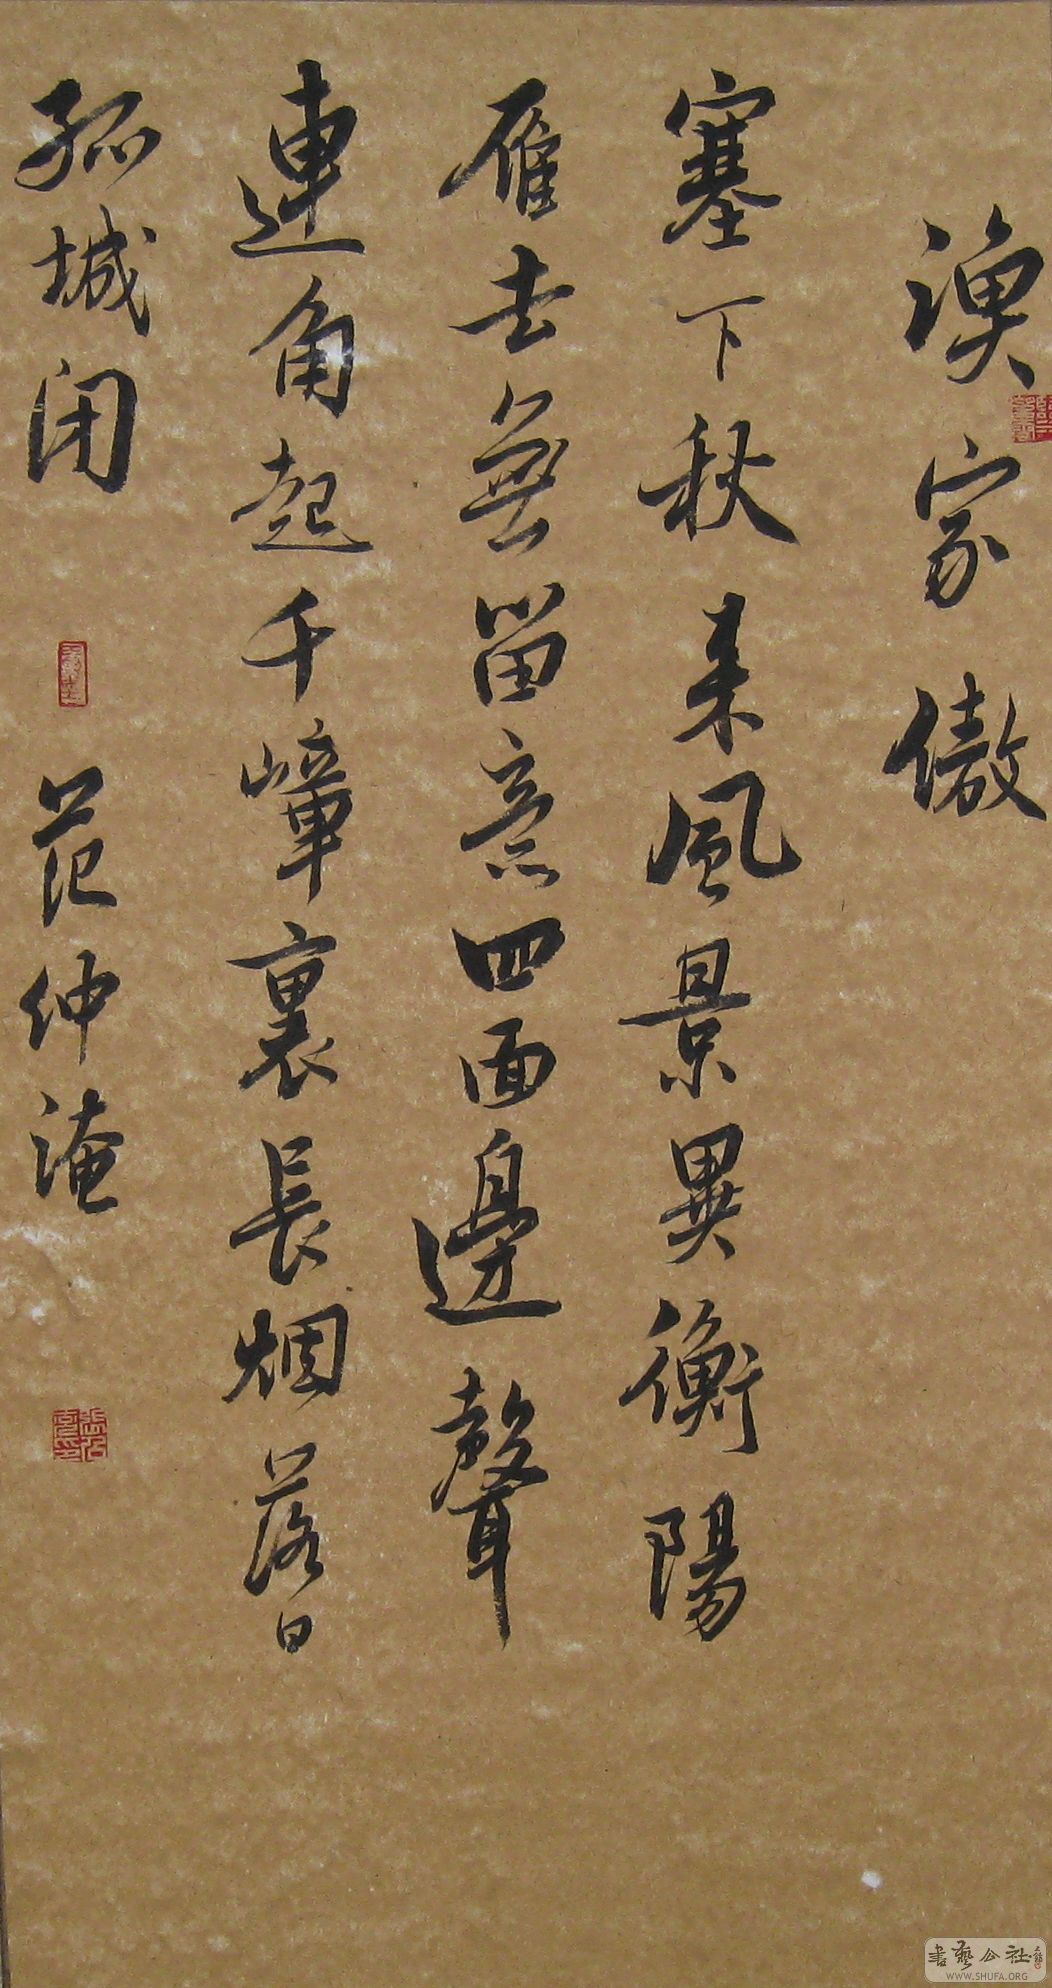 漁家傲
塞下秋来風景異衡陽
雁去無留意四面邊聲
連角起千嶂裏長烟落日
孤城闭
范仲淹
書藝公社
WWW.SHUFA.ORG